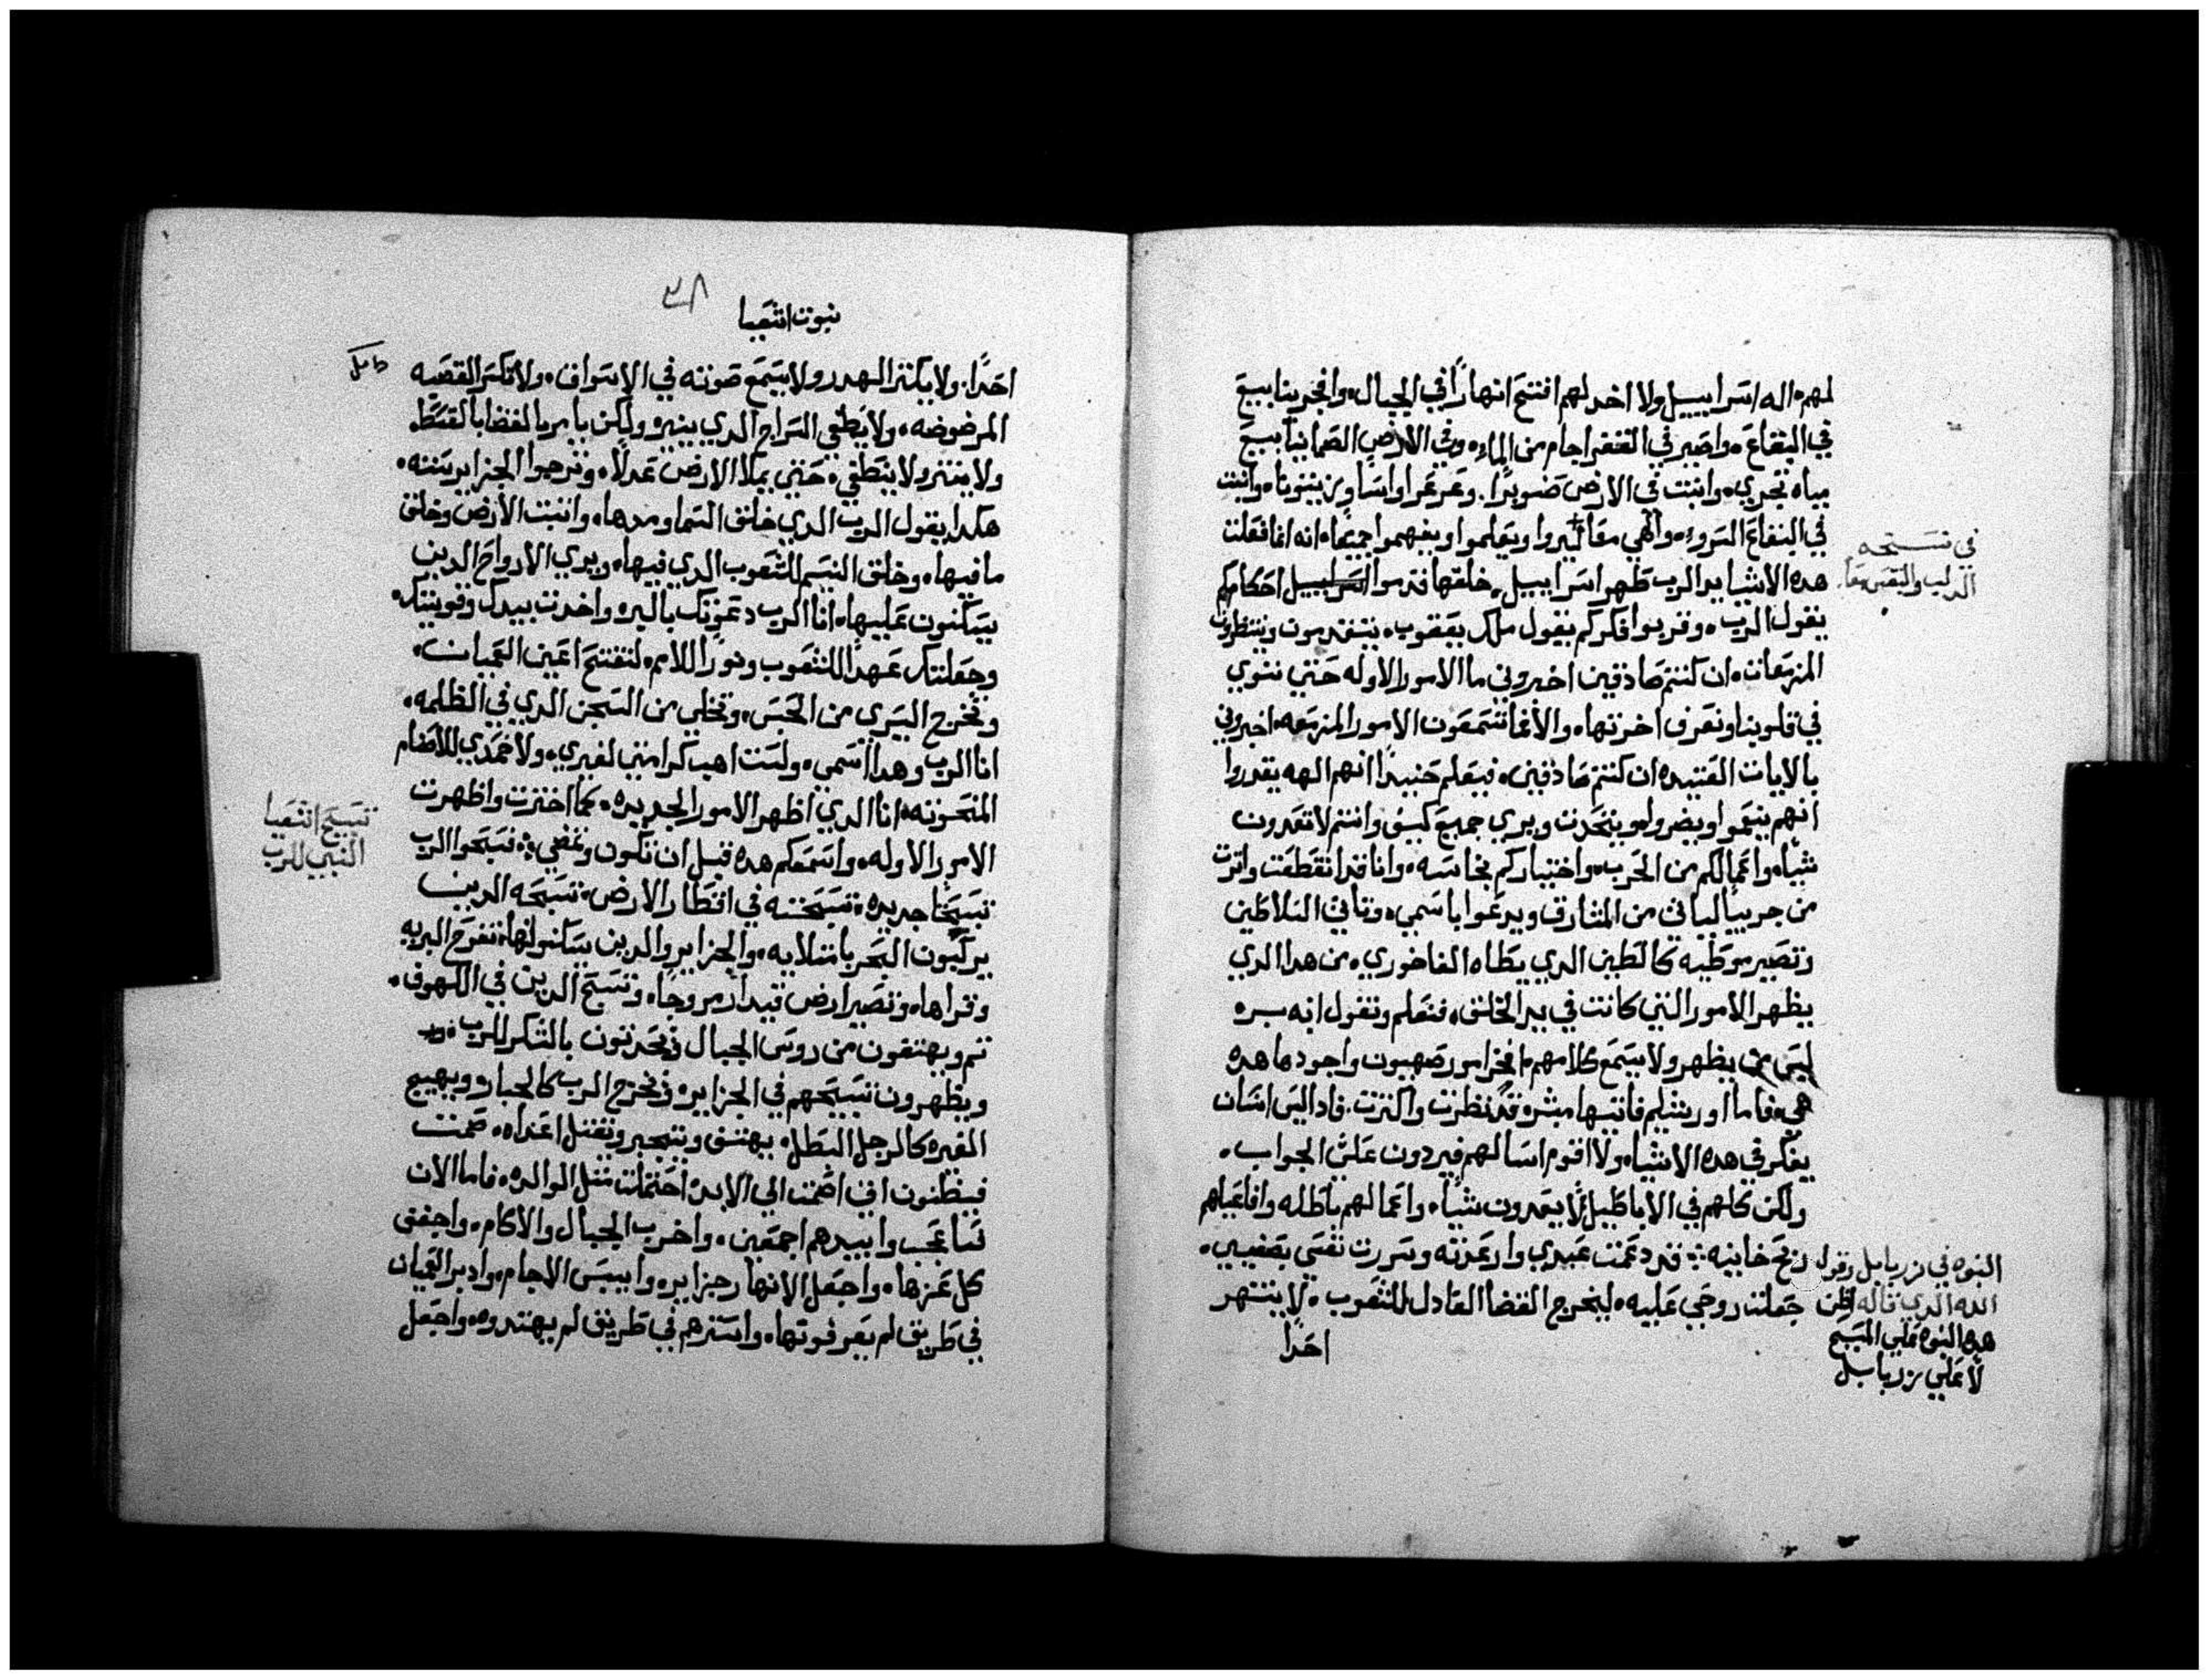 لهم، اله اسراييل ولا اخدلهم افتتح انهارًا في الجبال، وافجر ينابيع
في البقاع، واصير في القفر اجام من الماء، وفي الارض الصما ينابيع
مياه تجري، وانبت في الارض صنوبرًا. وعرعرا واسًا وزيتونا، وانبت
في البقاع السرو، والهي معًا ليروا ويعلموا ويفهموا جميعًا، انه انما فعلت
هده الاشيا يد الرب طهر اسراييل، خلقها قدموا احكامكم
يقول الرب، وقربوا فكركم يقول ملك يعقوب، يتقدمون وينتظرون
المزمعات، ان كنتم صادقين اخبروني ما الامور الاوله حتي ننوي
في قلوبنا ونعرف اخرتها، والا فما تسمعون الامور المزمعه، اخبروني
بالايات العتيده ان كنتم صادقين، فيعلم حنيدًا انهم الهه يقدروا
انهم ينعموا ويضروا ويتحدت ويري جميع كيف وانتم لا تقدرون
شياه واعمالكم من الحرب، واختياركم نجاسه، وانا قد انقطعت واترت
من جربيا لياتي من المشارق ويدعوا باسمي، وتاتي السلاطين
وتصير موطيه كالطين الدي يطاه الفاخوري، من هدا الدي
يظهر الامور التي كانت في بد الخلق، فنعلم ونقول انه بره
ليس من يظهر ولا يسمع كلامهم، امور صهيون واجودها هده
هي، فاما اورشليم فاتيها مبشره قد نظرت واكترت. فادا ليس انسان
يفكر في هده الاشياه ولا اقوم اسالهم فيردون علي الجواب،
ولكن كلهم في الاباطيل لا يعدون شياء، واعمالهم باطله وافاعيلهم
ريح خايبه؛ قد دعمت عبدي وارعدته وسررت نفسي بصفيي،
جعلت روحي عليه، ليخرج القضا العادل للشعوب، لا ينتهر
احدًا
في تسبحه
النبوه في زربابل وقول
الله الدي قاله اظن
هده النبوه علي المسيح
لا علي زربابل
٣٨
نبوت اشعيا
احدًا. ولا يكتر الهدر ولا يسمع صوته في الاسواق، ولا تكسر القصبه
المرضوضه، ولا يطفي السراج الدي ينيره ولكن يامر بالقضا بالقسط.
ولا يفتر ولا ينطفي، حتي يملا الارض عدلًا، وترجوا الجزاير سنته،
هكدا يقول الرب الدي خلق السما ومدها، واتبت الارض وخلق
ما فيها، وخلق النسيم للشعوب الدي فيها، ويري الارواح الدين
يسكنون عليها، انا الرب دعوتك بالبره واخدت بيدك وقويتك،
وجعلتك عهدًا للشعوب ونورًا للامم، لتفتح اعين العميان،
وتخرج اليسري من الحبس، وتخلي من السجن الدي في الظلمه،
انا الرب وهدا اسمي، ولست اهب كرامتي لغيري، ولا حمدي للاصنام
المنحوته، انا الدي اظهر الامور الجديده، كما اخترت واظهرت
الامور الاوله، واسمعكم هده قبل ان تكون وتمضي؛ فسبحوا الرب
تسبيحًا جديده، تسبحته في اقطار الارض، تسبحه الدين
يركبون البحر بامتلايه، والجزاير والدين يسكنوانها، تفرح البريه
وقراها، وتصير ارض قيدار مروجًا، وتسبح الدين في الكهوف،
تم ويهتفون من روس الجبال ويتحدتون بالشكر للرب،
ويظهرون تسبيحهم في الجزايره ويخرج الرب كالجبار، ويهيج
الغيره كالرجل البطل، يهتف ويتجبر ويقتل اعداه، صمت
فيظنون اني اصمت الي الابد، احتملت متل الوالده، فاما الان
فساعجب وابيدهم اجمعين، واخرب الجبال والاكام، واجفف
كل عزها، واجعل الانهار جزايره وابيس الاجام، وادبر العميان
في طريق لم يعرفوتها، واسترهم في طريق لم يهتدوه، واجعل
تسبيح اشعيا
النبي للرب